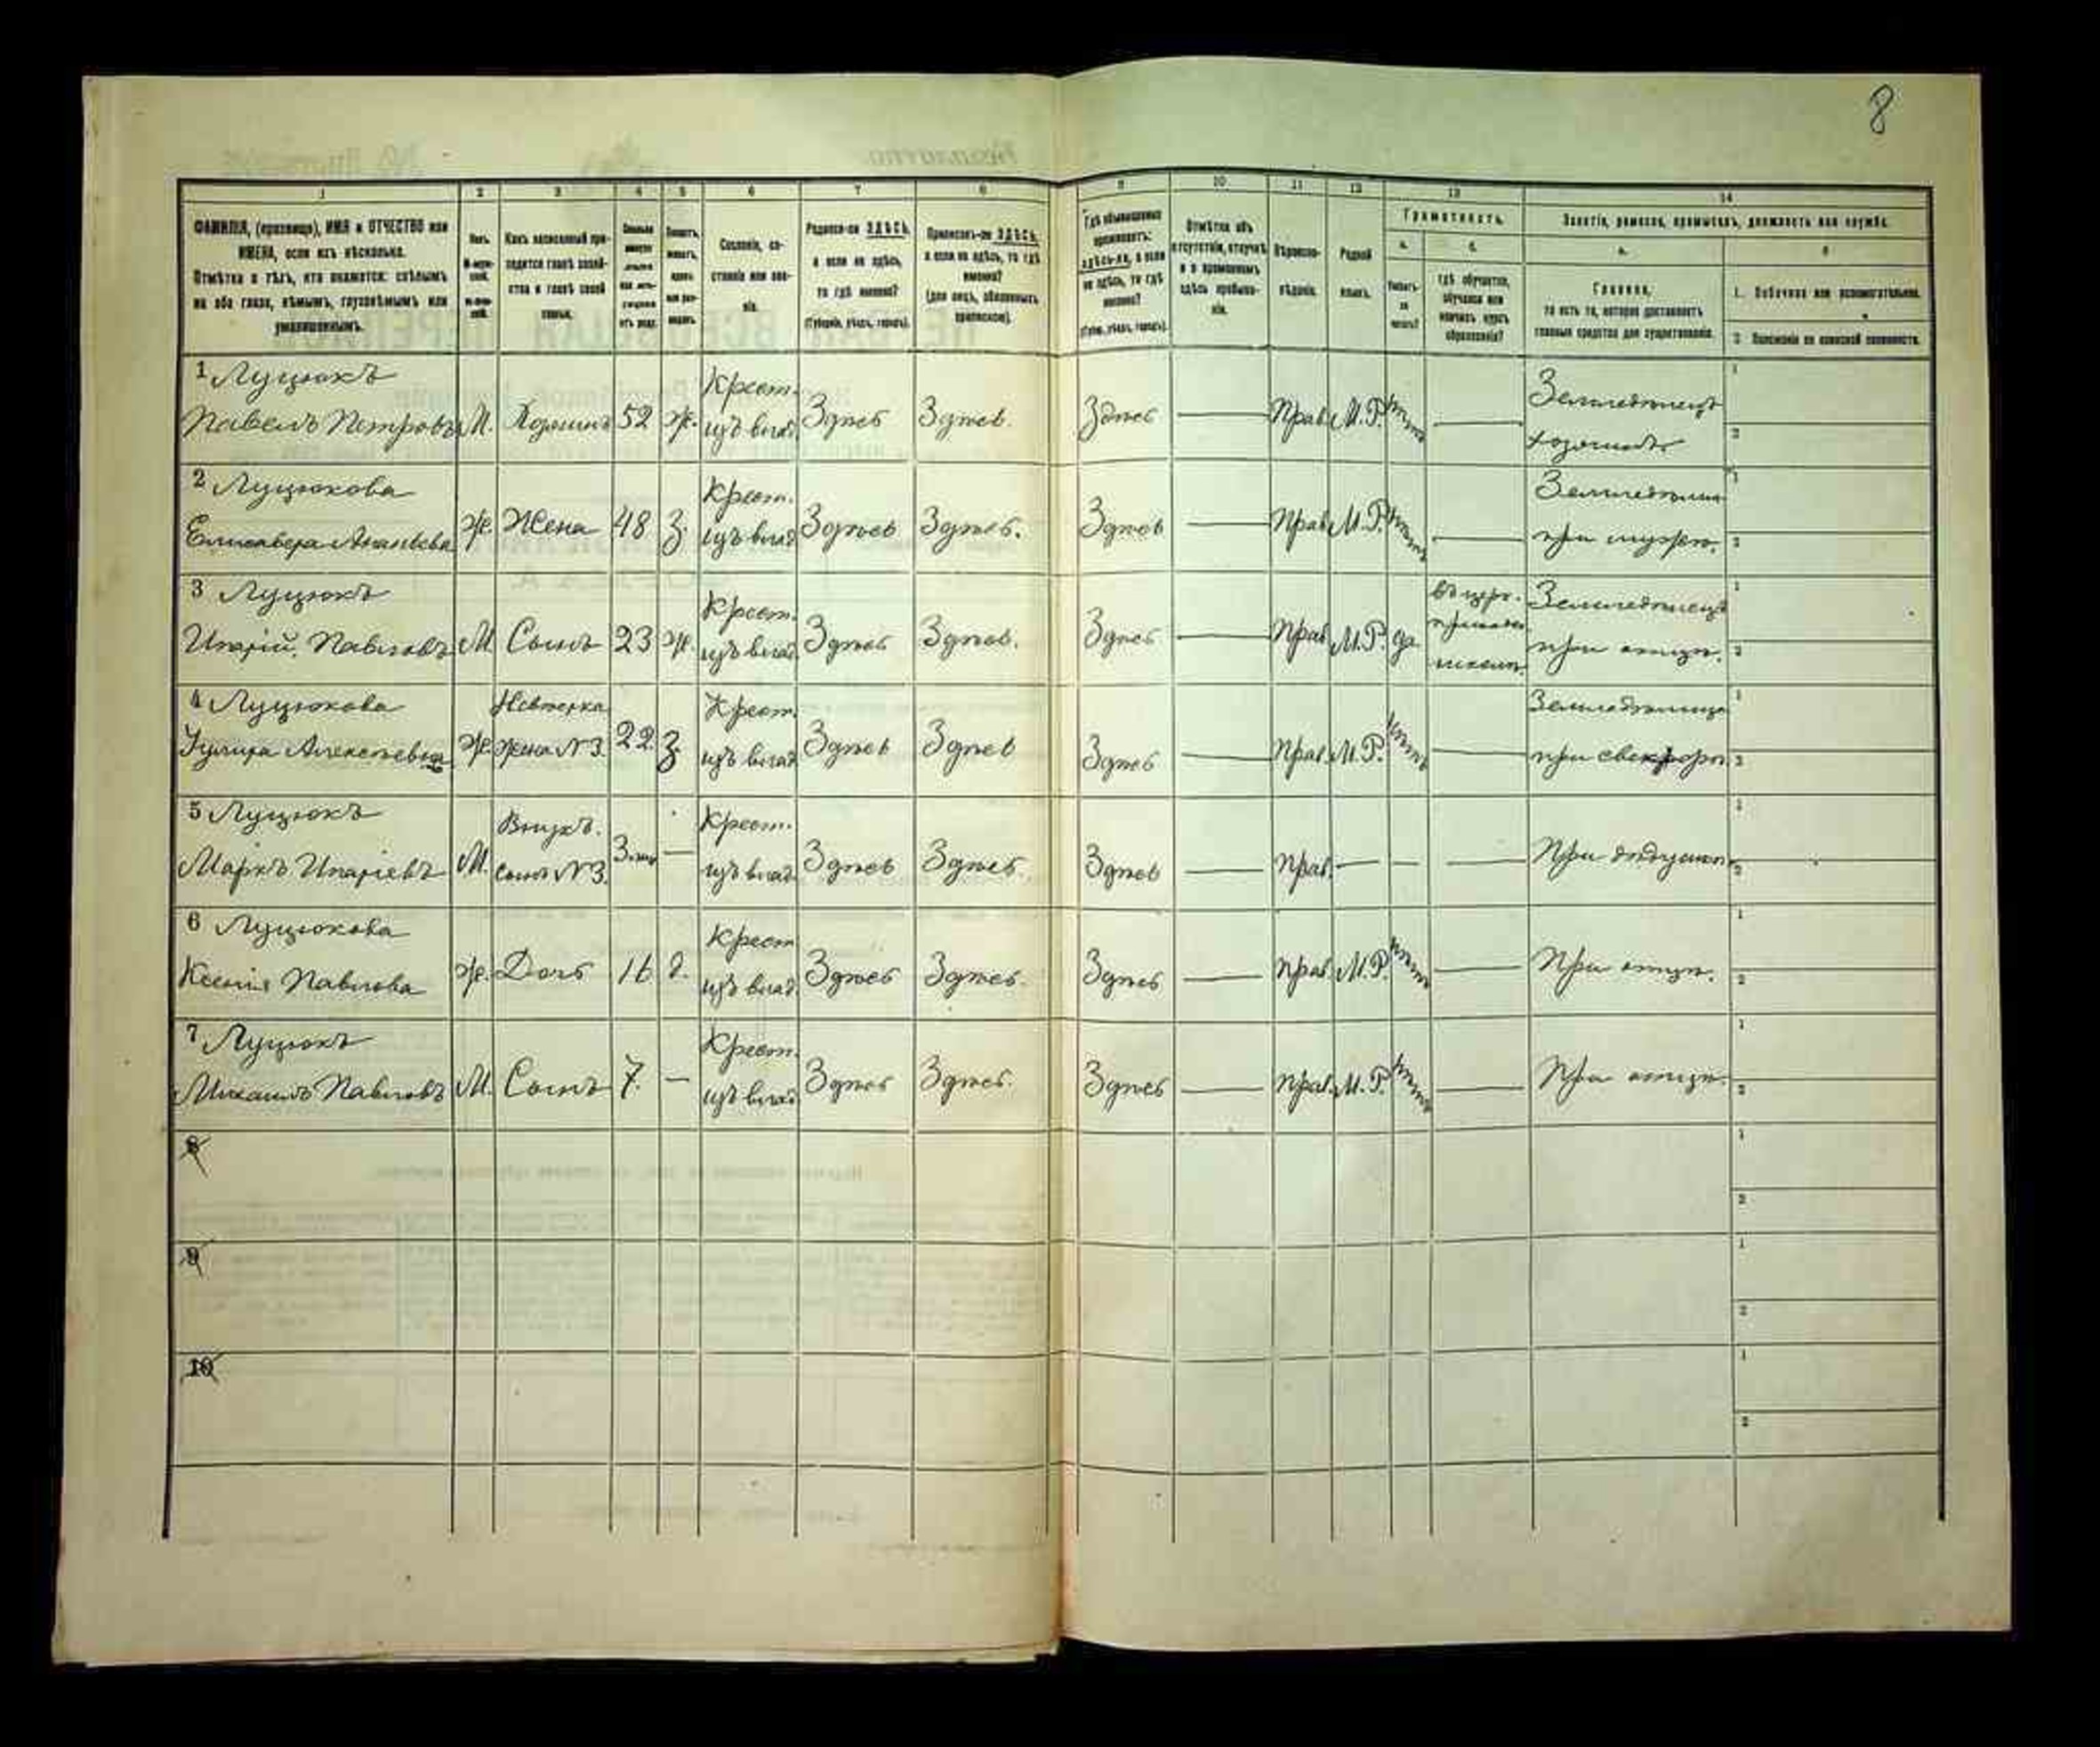 8
1 2 3 4 5 6 7 8 9 10 11 12 13 14
ФАМИЛІЯ, (прозвище), ИМЯ и ОТЧЕСТВО или
ИМЕНА, если ихъ нѣсколько.
Отмѣтка о тѣхъ, кто окажется: слѣпымъ
на оба глаза, нѣмымъ, глухонѣмымъ или
умалишеннымъ.
Полъ.
Какъ записанный при-
ходится главѣ хозяй-
ства и главѣ своей
семьи.
Сословіе, со-
стояніе или зва-
ніе.
Родился-ли ЗДѢСЬ,
а если не здѣсь,
то гдѣ именно?
(Губернія, уѣздъ, городъ).
Приписанъ-ли ЗДѢСЬ,
а если не здѣсь, то гдѣ
именно?
(для лицъ, обязанныхъ
припискою).
Гдѣ обыкновенно
проживаетъ:
здѣсь-ли, а если
не здѣсь, то гдѣ
именно?
(Губ., уѣздъ, городъ).
Отмѣтка объ
отсутствіи, отлучкѣ
и о временномъ
здѣсь пребыва-
ніи.
Вѣроиспо-
вѣданіе.
Родной
языкъ.
Грамотность.
а. б.
Умѣетъ-
ли
читать?
гдѣ обучается,
обучался или
кончилъ курсъ
образованія?
Занятіе, ремесло, промыселъ, должность или служба.
а.
Главное,
то есть то, которое доставляетъ
главныя средства для существованія.
1. Побочное или вспомогательное.
2 Положеніе по воинской повинности.
1 Луцюкъ
Павелъ Петровъ М. Хозяинъ 52 ж. Крест. изъ влад. Здѣсь Здѣсь. Здѣсь — Прав. М.Р. нѣтъ — Земледѣлецъ хозяинъ.
2 Луцюкова
Елисавета Ананьева Ж. Жена 48 З. Крест. изъ влад. Здѣсь Здѣсь. Здѣсь — Прав. М.Р. нѣтъ — при мужѣ.
3 Луцюкъ
Ипатій Павловъ М. Сынъ 23 ж. Крест. изъ влад. Здѣсь Здѣсь. Здѣсь — Прав. М.Р. да Земледѣлецъ при отцѣ.
4 Луцюкова
Улита Алексѣевна Ж. Невѣстка жена №3. 22. З. Крест. изъ влад. Здѣсь Здѣсь Здѣсь — Прав. М.Р. нѣтъ —
5 Луцюкъ
Маркъ Ипатіевъ М. Внукъ. сынъ №3. — Крест. изъ влад. Здѣсь Здѣсь. Здѣсь — Прав. — — — При дѣдушкѣ
6 Луцюкова
Ксенія Павлова Ж. Дочь 16 д. Крест изъ влад. Здѣсь Здѣсь. Здѣсь — Прав. М.Р. нѣтъ — При отцѣ.
7 Луцюкъ
Михаилъ Павловъ М. Сынъ 7. — Крест. изъ влад. Здѣсь Здѣсь. Здѣсь — Прав. М.Р. нѣтъ — При отцѣ.
8
9
10